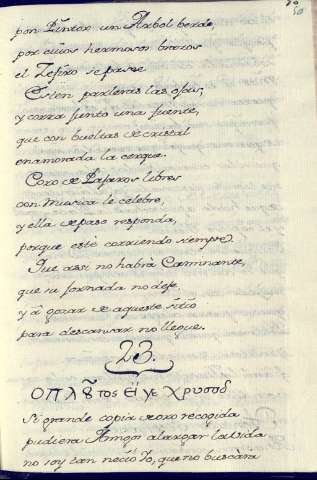 50
pon Pintor un Arbol berde,
por cuios hermosos brazos
el Zefiro se pasee
Esten parleras las ojas,
y corra junto una fuente,
que con bueltas de cristal
enamorada la cerque.
Coro de Pajaros libres
con musica le celebre,
y ella de paso responda,
porque esté corriendo siempre.
Que assi no habrà Caminante,
que su jornada no deje,
y à gozar de aqueste sitio
para descansar no llegue.
23.
Ο πλȣ̃τος εί γε χρυσοῦ
Si grande copia de oro recogida
pudiera Amigos alargar la vida
no soy tan necio Yo, que no buscàra